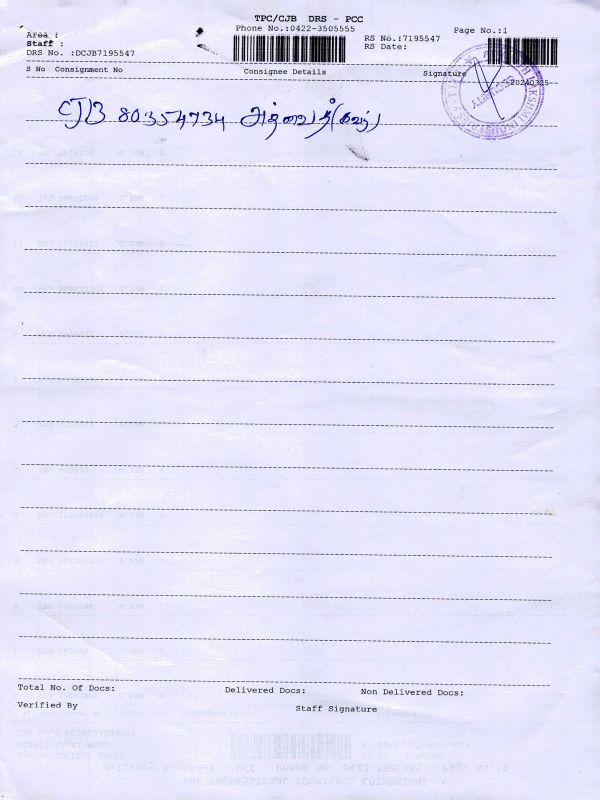 TPC/CJB DRS - PCC
Area :
Phone No.:0422-3505555
Page No.:1
Staff :
RS No.:7195547
DRS No. :DCJB7195547
RS Date:
S No Consignment No
Consignee Details
Signature
20240325
CJB 80354734
SECURITY
Total No. Of Docs:
Delivered Docs:
Non Delivered Docs:
Verified By
Staff Signature